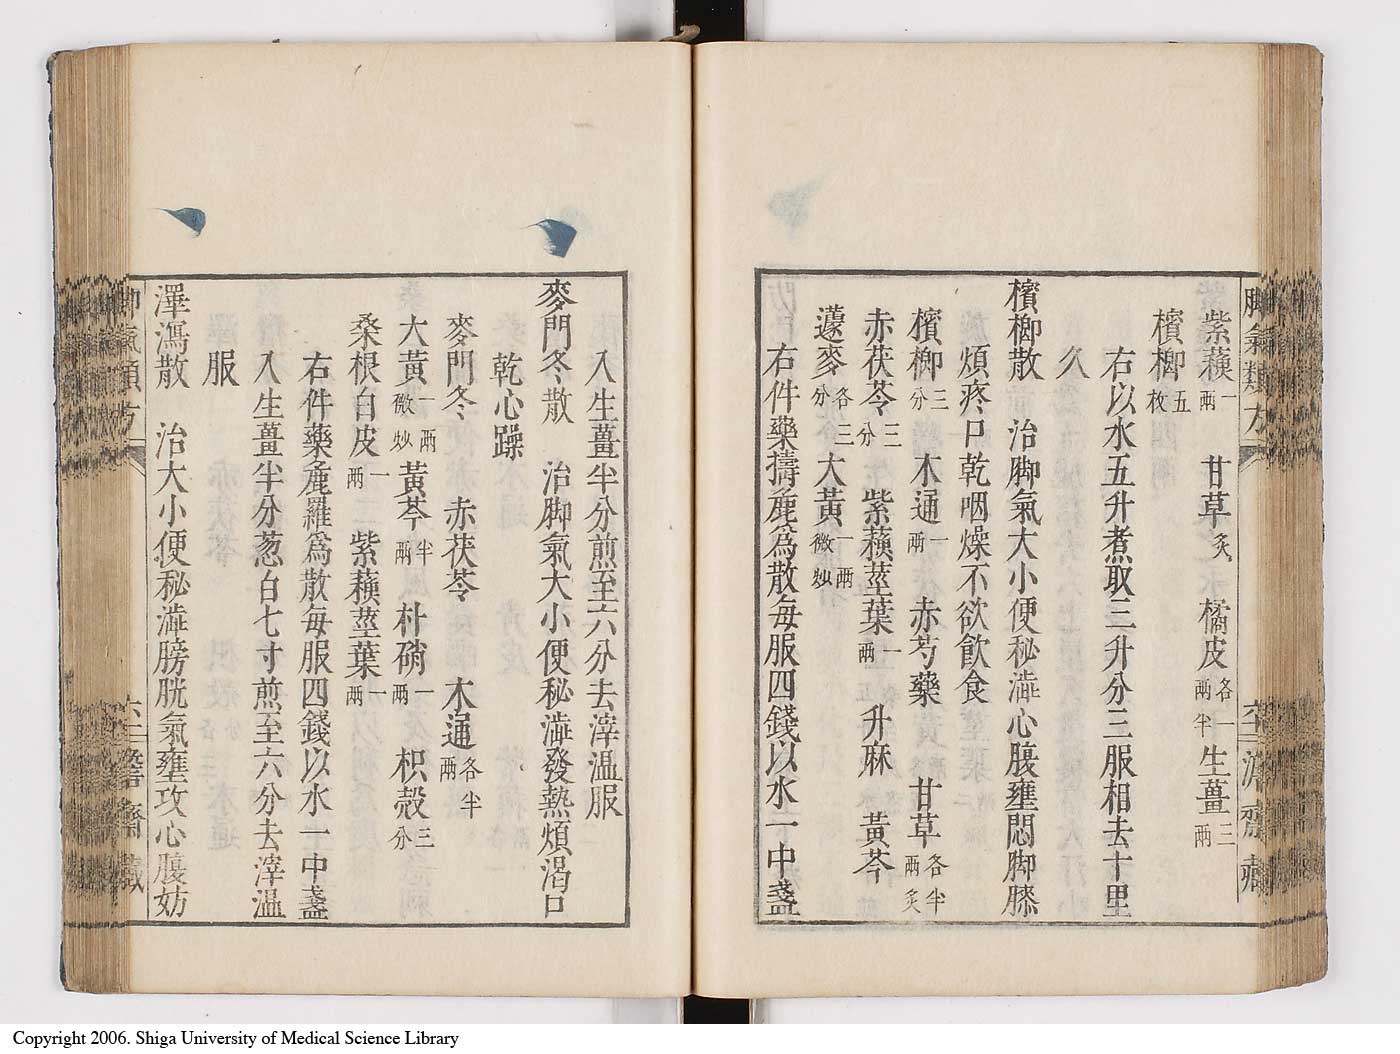 紫蘓一兩　甘草炙　橘皮各一兩半　生薑三兩
檳榔五枚
右以水五升煮取三升分三服相去十里
久
檳榔散　治脚氣大小便秘澁心腹壅悶脚膝
煩疼口乾咽燥不欲飲食
檳榔三分　木通一兩　赤芍藥　甘草各半兩炙
赤茯苓三分　紫蘓莖葉一兩　升麻　黃芩
蘧麥各三分　大黃一兩微炒
右件藥擣麁爲散每服四錢以水一中盞
入生薑半分煎至六分去滓溫服
麥門冬散　治脚氣大小便秘澁發熱煩渴口
乾心躁
麥門冬　赤茯苓　木通各半兩
大黃一兩微炒　黃芩半兩　朴硝一兩　枳殼三分
桑根白皮一兩　紫蘓莖葉一兩
右件藥麁羅爲散每服四錢以水一中盞
入生薑半分葱白七寸煎至六分去滓溫
服
澤瀉散　治大小便秘澁膀胱氣壅攻心腹妨
脚氣類方
齋藏
Copyright 2006. Shiga University of Medical Science Library